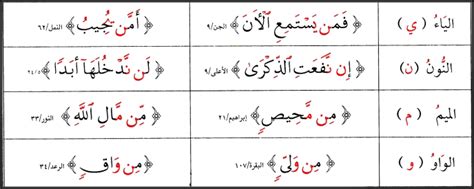 اليَاءُ ( ي ) ﴿فَمَن يَسْتَمِعِ ٱلْآنَ﴾ الجن/٩ ﴿أَمَّن يُجِيبُ﴾ النمل/٦٢
النُّونُ ( ن ) ﴿إِن نَّفَعَتِ ٱلذِّكْرَىٰ﴾ الأعلى/٩ ﴿لَن نَّدْخُلَهَا أَبَدًا﴾ ٢٤/٥
الميمُ ( م ) ﴿مِن مَّحِيصٍ﴾ إبراهيم/٢١ ﴿مِّن مَّالِ ٱللَّهِ﴾ النور/٣٣
الوَاوُ ( و ) ﴿مِن وَلِيٍّ﴾ البقرة/١٠٧ ﴿مِن وَاقٍ﴾ الرعد/٣٤